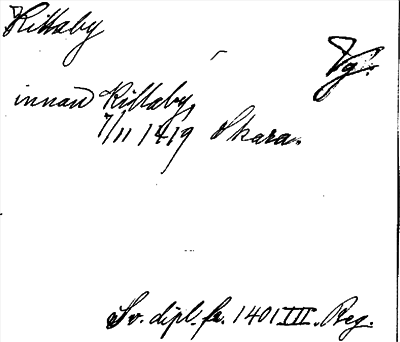 Killaby
Vg.
innan Killaby,
7/11 1419 Skara.
Sv. dipl. fr. 1401 III. Reg.